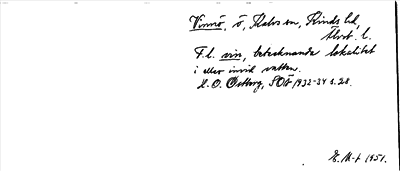 Vinnö, ö, Kalvs sn, Kinds hd,
Älvsb. l.
F. l. vin, betecknande lokalitet
i eller invid vatten.
S.O. 1932-34 s. 28.
E. M-t 1951.